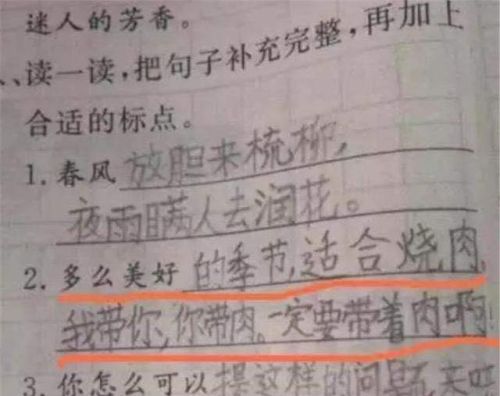 迷人的芳香。
、读一读,把句子补充完整,再加上
合适的标点。
1. 春风放胆来梳柳,
夜雨瞒人去润花。
2. 多么美好的季节,适合烧肉,
我带你,你带肉。一定要带着肉啊
3. 你怎么可以提这样的问题,来